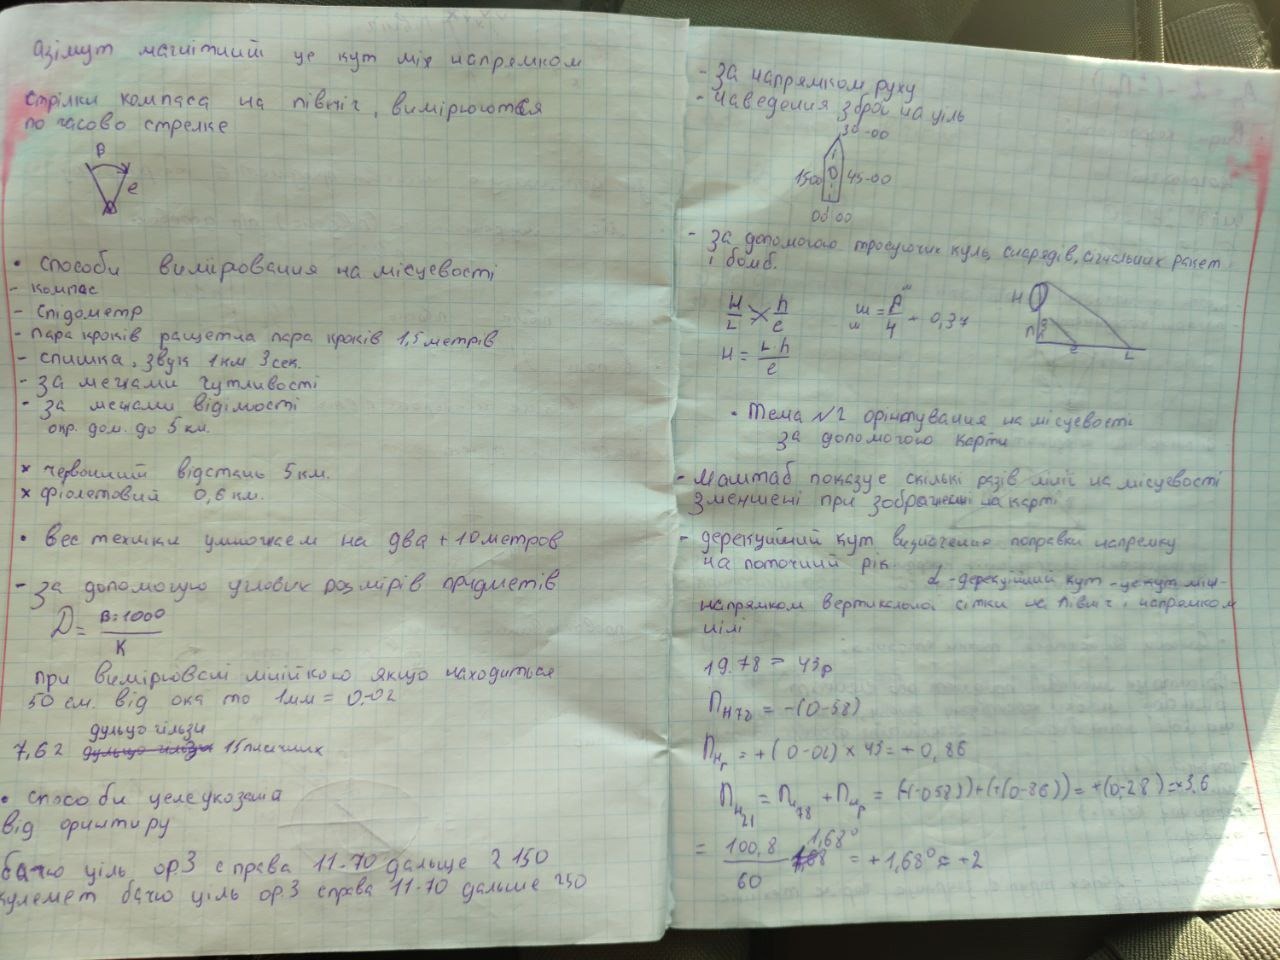 азімут магнітний це кут між напрямком
стрілки компаса на північ, вимірюются
по часово стрелке
В
е
• способи вимірювання на місцевості
- компас
- спідометр
- пара кроків ращетна пара кроків 1,5 метрів
- спишка, звук 1 км 3 сек.
- за межами чутливості
- за межами відімості
опр. дом. до 5 км.
х червонний відстань 5 км.
х фіолетовий 0,6 км.
• вес техніки умножаем на два + 10 метров
- за допомогую углових розмірів придметів
Д = В·1000
К
при вимірювані лінійкою якщо находиться
50 см. від ока то 1 мм = 0,-02
дульцо гільзи
7,62 15 тисячних
• способи целеуказема
від ориитиру
бачю ціль ор.3 справа 11-70 дальще 2 150
кулемет бачю ціль ор.3 справа 11-70 дальше 250
- за напрямком руху
- наведення зброї на ціль
30-00
1500 45-00
00-00
- за допомогою тросуючих куль, снарядів, сігнальних ракет
і бомб.
H h
L е
H = L·h
е
4 + 0,37
H
h
е L
• Тема №2 орінтування на місцевості
за допомогою карти
- Маштаб показує скількі разів лініі на місцевості
зменшені при зображенні на карті
- дерекційний кут визначению поправки напремку
на поточний рік
α - дерекційний кут - це кут між-
напрямком вертикальної сітки на північ і напрямком
цілі
19.78 = 43р
Пн78 = -(0-58)
Пнг = +(0-02) × 43 = + 0,86
Пн21 = Пн78 + Пнр = (-(-058)) + (+(0-86)) = +(0-28) = ×3,6
= 100,8 1,68°
60 = +1,68° ≈ +2